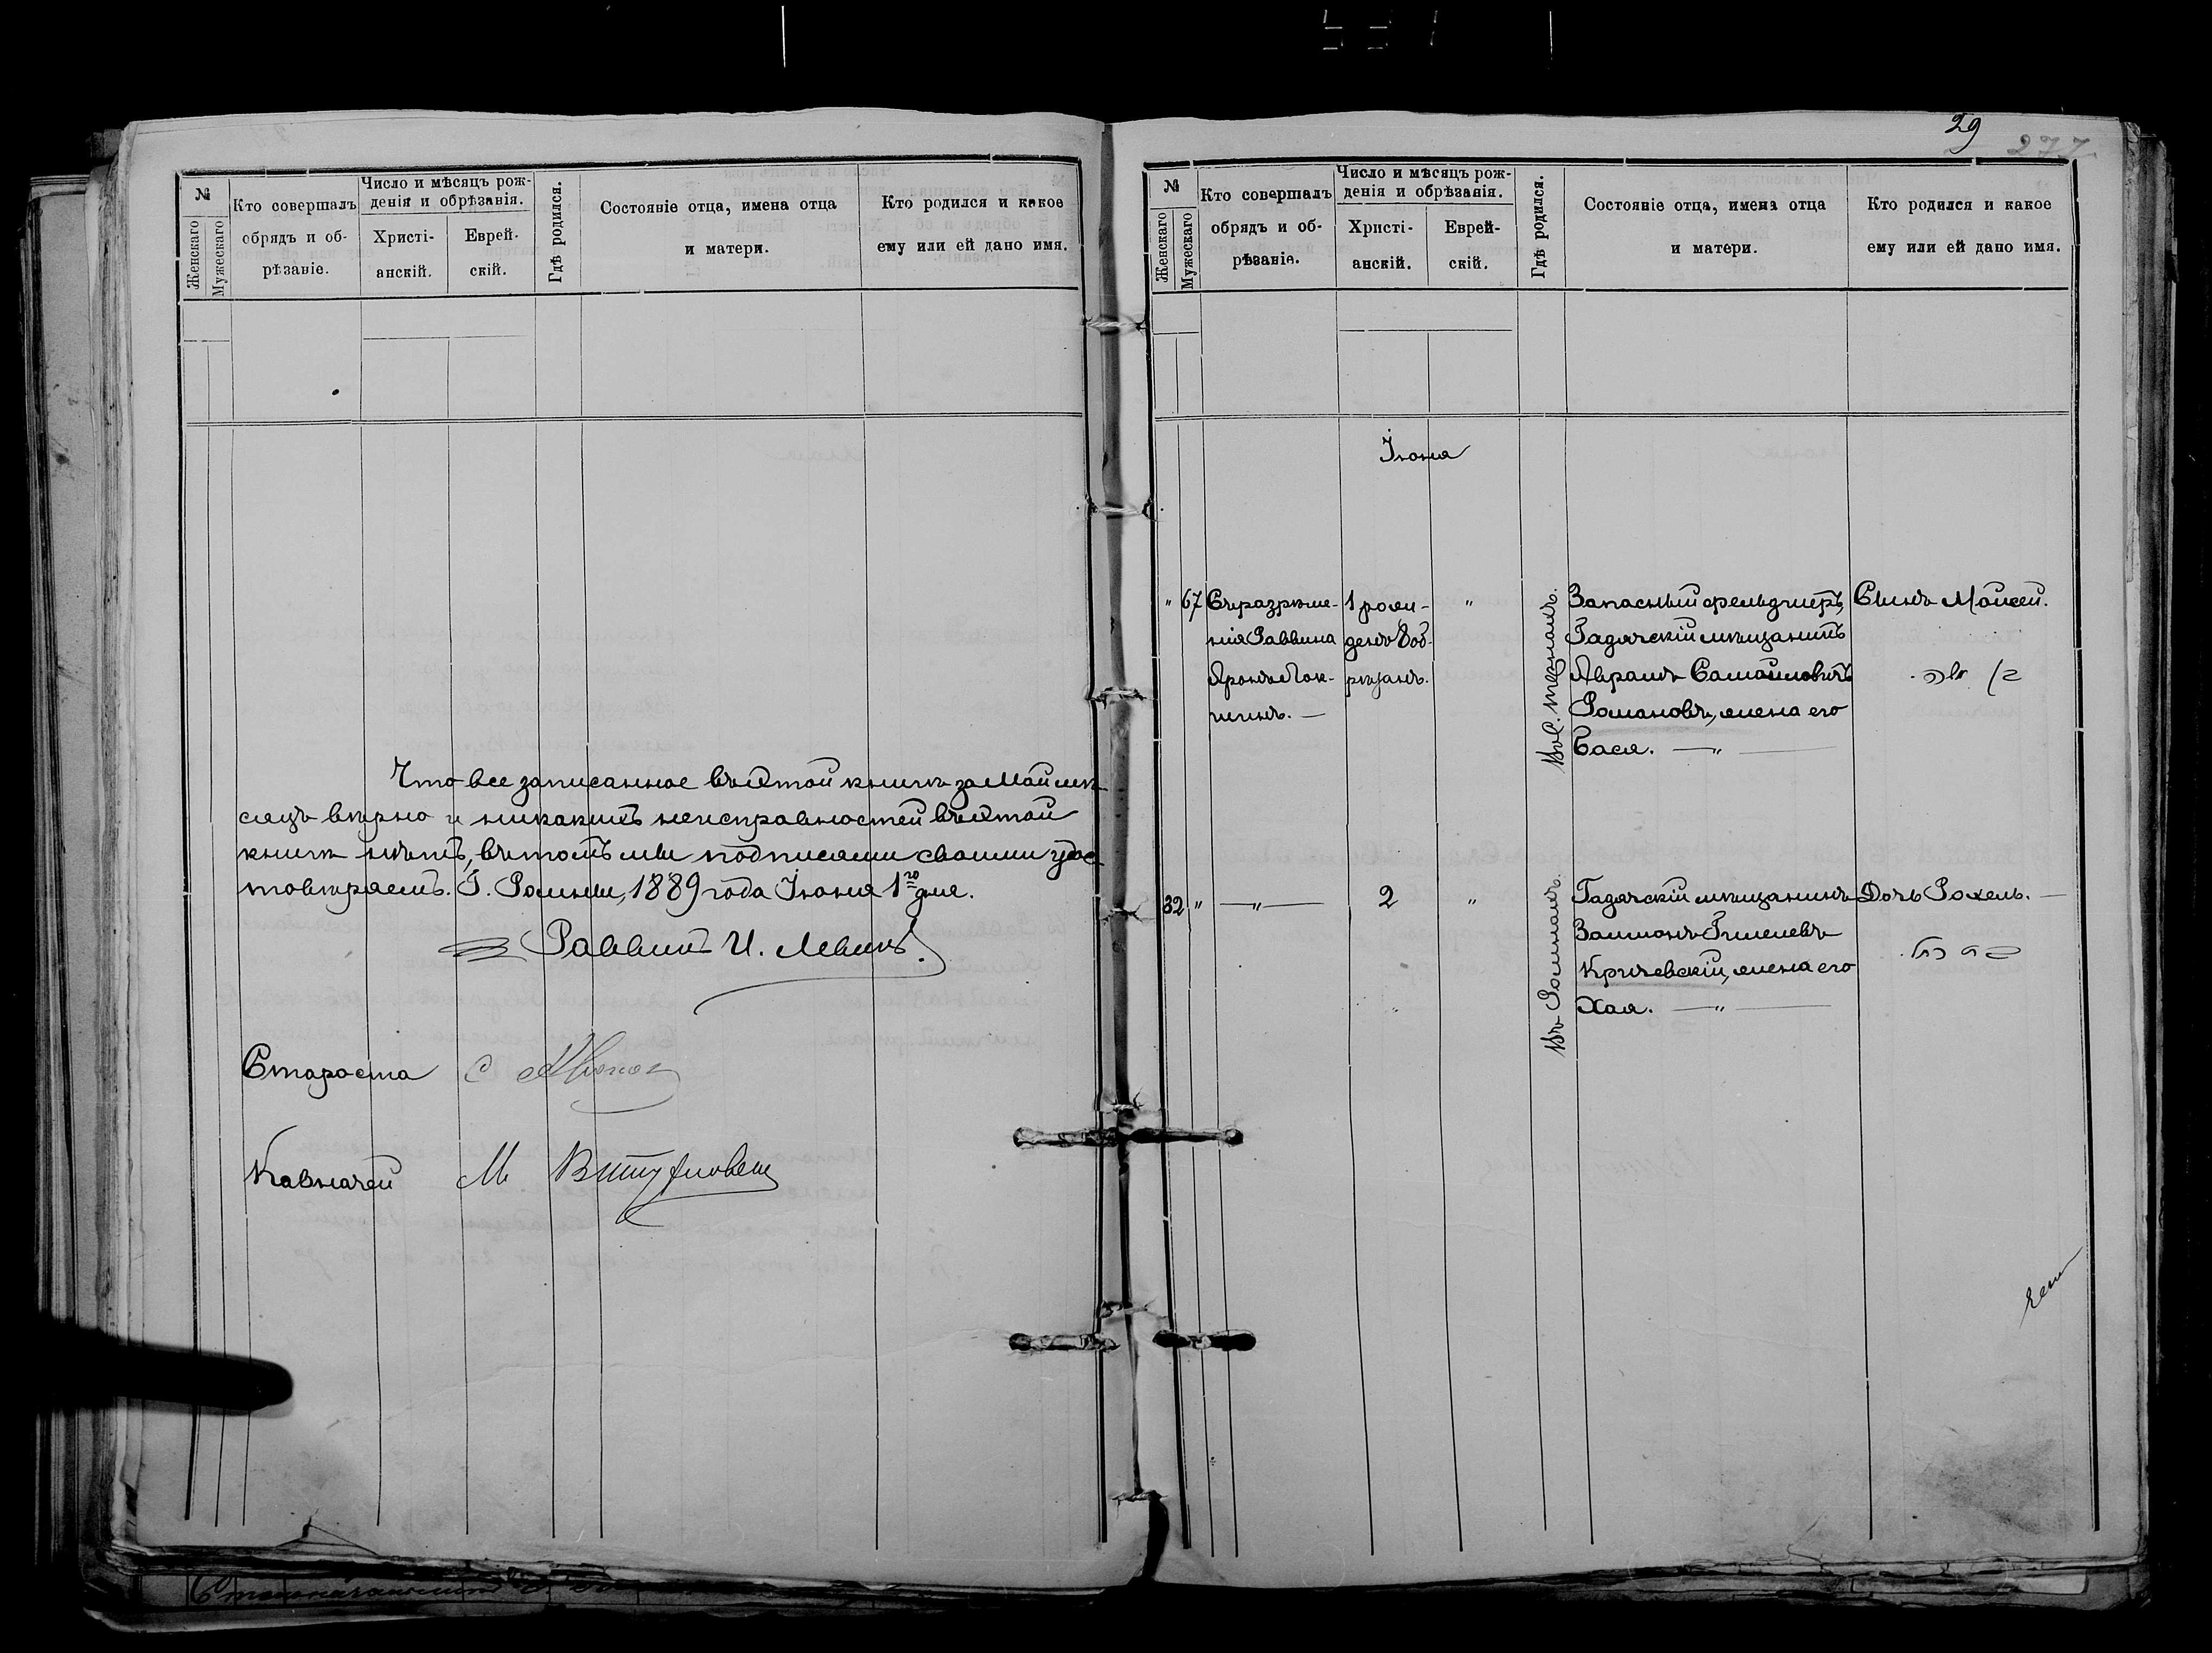 №
Женскаго
Мужескаго
Кто совершалъ
обрядъ и об-
рѣзаніе.
Число и мѣсяцъ рож-
денія и обрѣзанія.
Христі-
анскій.
Еврей-
скій.
Гдѣ родился.
Состояніе отца, имена отца
и матери.
Кто родился и какое
ему или ей дано имя.
Что все записанное въ этой книгѣ за Май мѣ-
сяцъ вѣрно и никакихъ неисправностей въ этой
книгѣ нѣтъ, въ томъ мы подписями своими удос-
товѣряемъ. Г. Ромны, 1889 года Іюня 1го дня.
Раввинъ И. Левинъ
Староста С
Казначей М
29
277
№
Женскаго
Мужескаго
Кто совершалъ
обрядъ и об-
рѣзаніе.
Число и мѣсяцъ рож-
денія и обрѣзанія.
Христі-
анскій.
Еврей-
скій.
Гдѣ родился.
Состояніе отца, имена отца
и матери.
Кто родился и какое
ему или ей дано имя.
Іюня
" 67
Съ разрѣше-
нія Раввина
Аронъ
1 рож-
денъ 8 об-
рѣзанъ.
"
Запасный фельдшеръ,
Гадячскій мѣщанинъ
Абрамъ Самойловичъ
Романовъ, жена его
Бася. — " —
Сынъ Мойсей.
בן משה.
32 "
— " —
2
"
Въ Ромнахъ.
Гадячскій мѣщанинъ
Залманъ Гишелевъ
Кричевскій, жена его
Хая. — " —
Дочь Рохель. —
בת רחל.